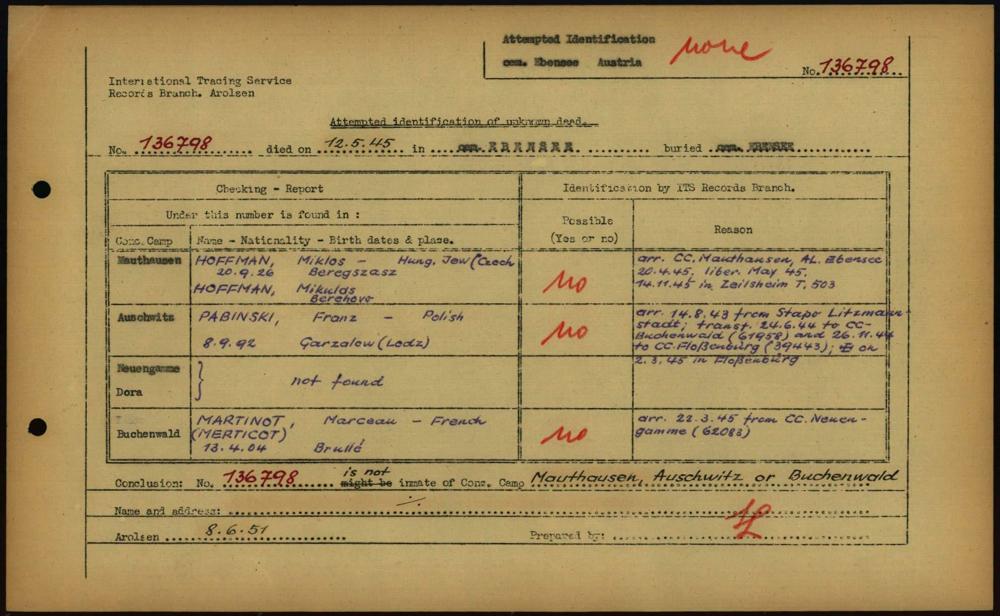 Attempted Identification
cem. Ebensee Austria
none
No. 136798
International Tracing Service
Records Branch. Arolsen
Attempted identification of unknown dead.
No. 136798 died on 12.5.45 in cem. EBENSEE buried cem. EBENSEE
Checking - Report
Identification by ITS Records Branch.
Under this number is found in :
Possible
(Yes or no)
Reason
Conc. Camp
Name - Nationality - Birth dates & place.
Mauthausen
HOFFMAN, Miklos - Hung. Jew (Czech
20.9.26 Beregszasz
HOFFMAN, Mikulas
Berehovo
no
arr. CC. Mauthausen, AL. Ebensee
20.4.45, liber. May 45.
14.11.45 in Zeilsheim T. 503
Auschwitz
PABINSKI, Franz - Polish
8.9.92 Garzalow (Lodz)
no
arr. 14.8.43 from Stapo Litzmann-
stadt; transf. 24.6.44 to CC-
Buchenwald (61958) and 26.11.44
to CC. Floßenbürg (39443); on
2.3.45 in Floßenbürg
Neuengamme
Dora
} not found
Buchenwald
MARTINOT, Marceau - French
(MERTICOT)
13.4.04 Brullé
no
arr. 22.3.45 from CC. Neuen-
gamme (62083)
Conclusion: No. 136798 is not might be inmate of Conc. Camp Mauthausen, Auschwitz or Buchenwald
Name and address: ÷
Arolsen 8.6.51 Prepared by: